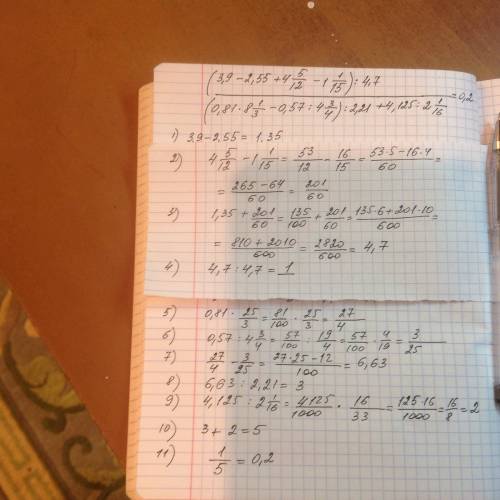 (3,9 − 2,55 + 4 5/12 − 1 1/15) : 4,7
(0,81 · 8 1/3 − 0,57 : 4 3/4) : 2,21 + 4,125 : 2 1/16 = 0,2
1) 3.9 − 2.55 = 1.35
2) 4 5/12 − 1 1/15 = 53/12 − 16/15 = 53·5−16·4/60 =
= 265−64/60 = 201/60
3) 1,35 + 201/60 = 135/100 + 201/60 = 135·6+201·10/600 =
= 810+2010/600 = 2820/600 = 4,7
4) 4,7 : 4,7 = 1
5) 0,81 · 25/3 = 81/100 · 25/3 = 27/4
6) 0,57 : 4 3/4 = 57/100 : 19/4 = 57/100 · 4/19 = 3/25
7) 27/4 − 3/25 = 27·25−12/100 = 6,63
8) 6,63 : 2,21 = 3
9) 4,125 : 2 1/16 = 4125/1000 · 16/33 = 125·16/1000 = 16/8 = 2
10) 3 + 2 = 5
11) 1/5 = 0,2